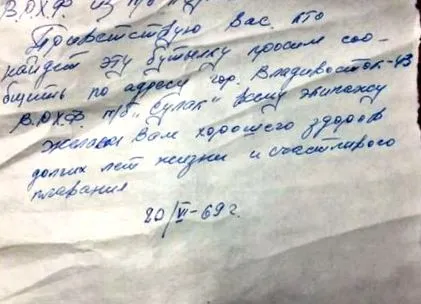 В.О.Х.Ф. из п/б
Приветствую Вас кто
найдет эту бутылку просим соо-
бщить по адресу гор. Владивосток-43
В.О.Х.Ф. п/б "Сулак" всему экипажу
желаем Вам хорошего здоров
долгих лет жизни и счастливого
плавания
20/VI-69г.